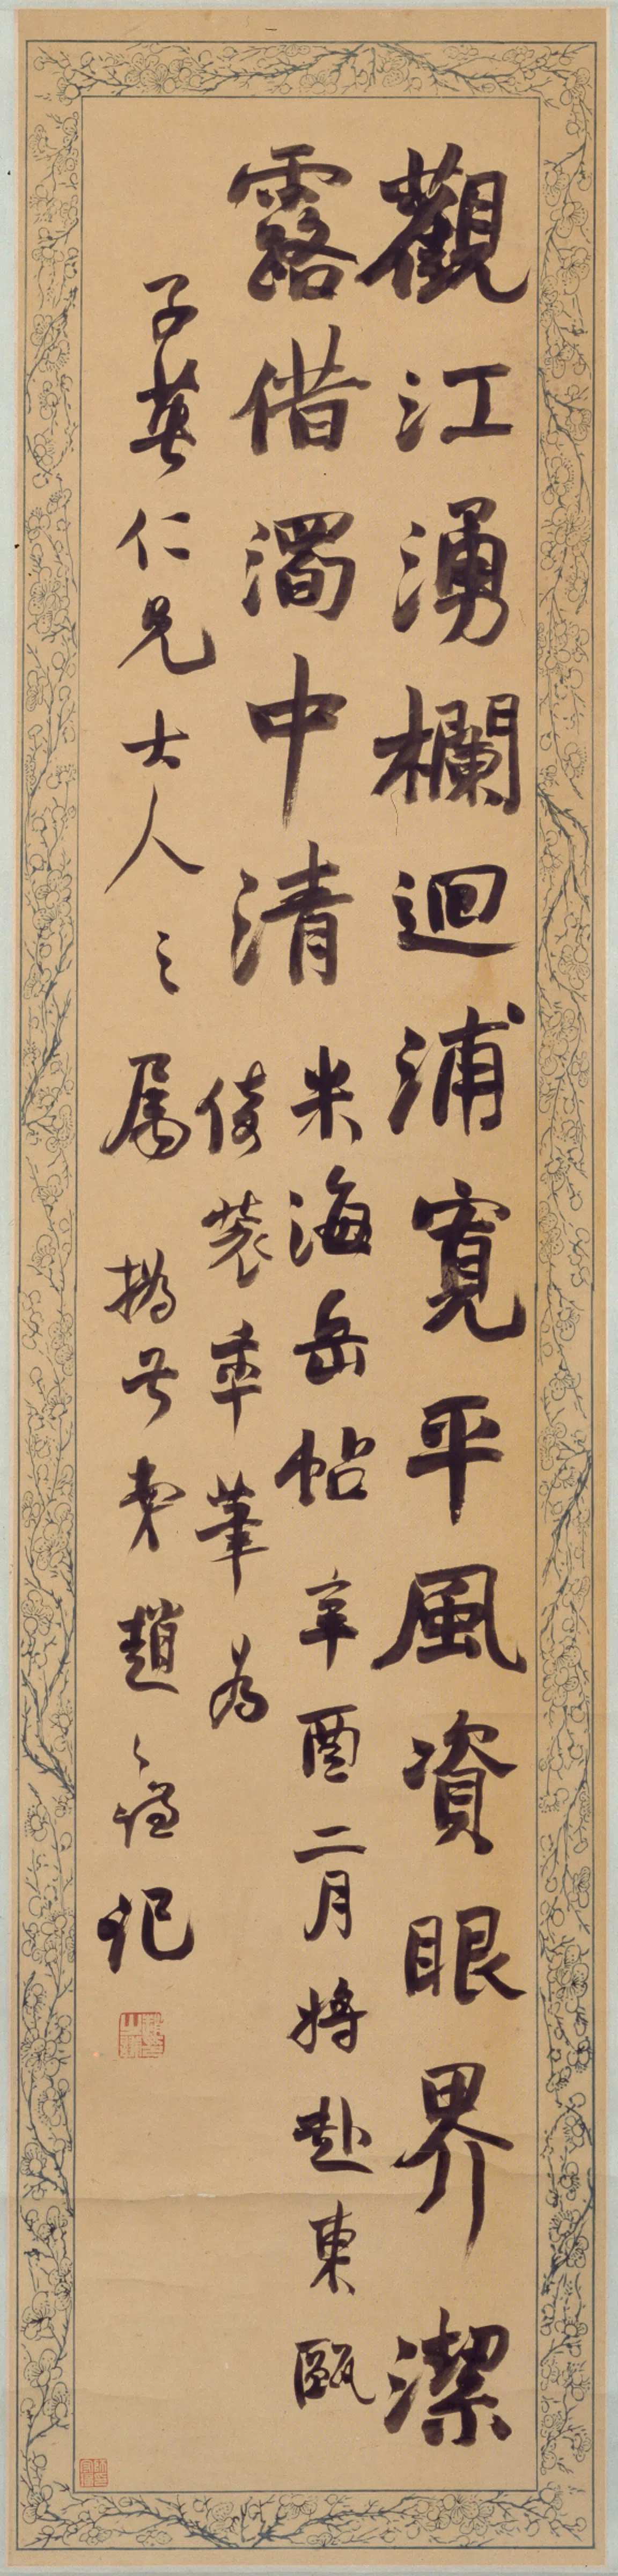 觀江湧欄迴浦寬平風資眼界潔
露借濁中清
米海岳帖 辛酉二月將赴東甌
倚裝率筆為
子英仁兄大人之屬 撝叔弟趙之謙記